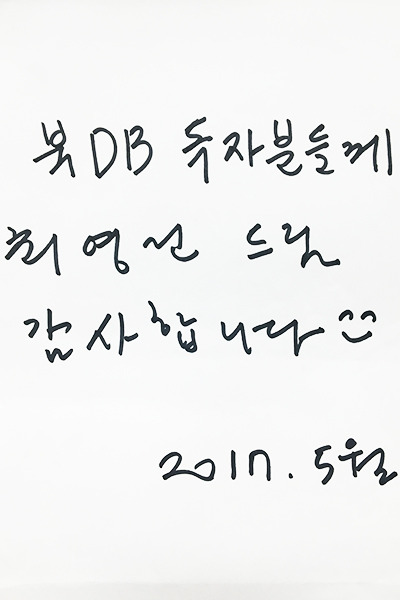 북DB 독자분들께
최영선 드림
감사합니다
2017. 5월